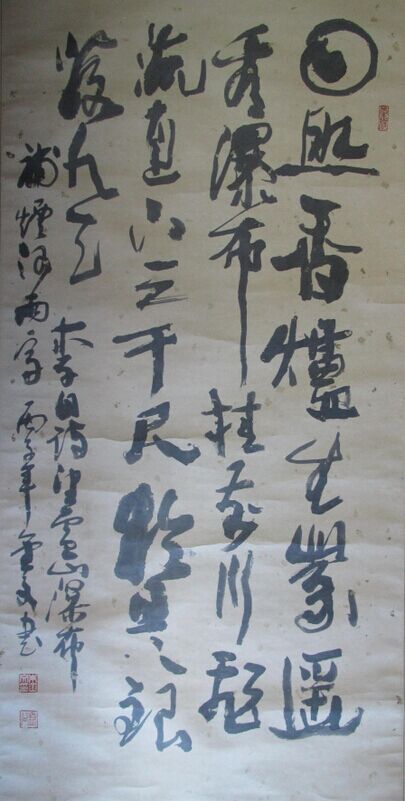 日照香爐生紫遥
看瀑布挂前川飛
流直下三千尺疑是銀
落九天
李白詩望廬山瀑布
補煙河兩字 丙子年 文书